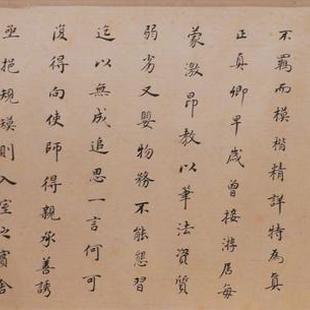 不羈而模楷精詳特為真
正真卿早歲曾接游居每
蒙激昂教以筆法資質
弱劣又嬰物務不能懇習
迄以無成追思一言何可
復得向使師得親承善誘
亟挹規模則入室之賓舍